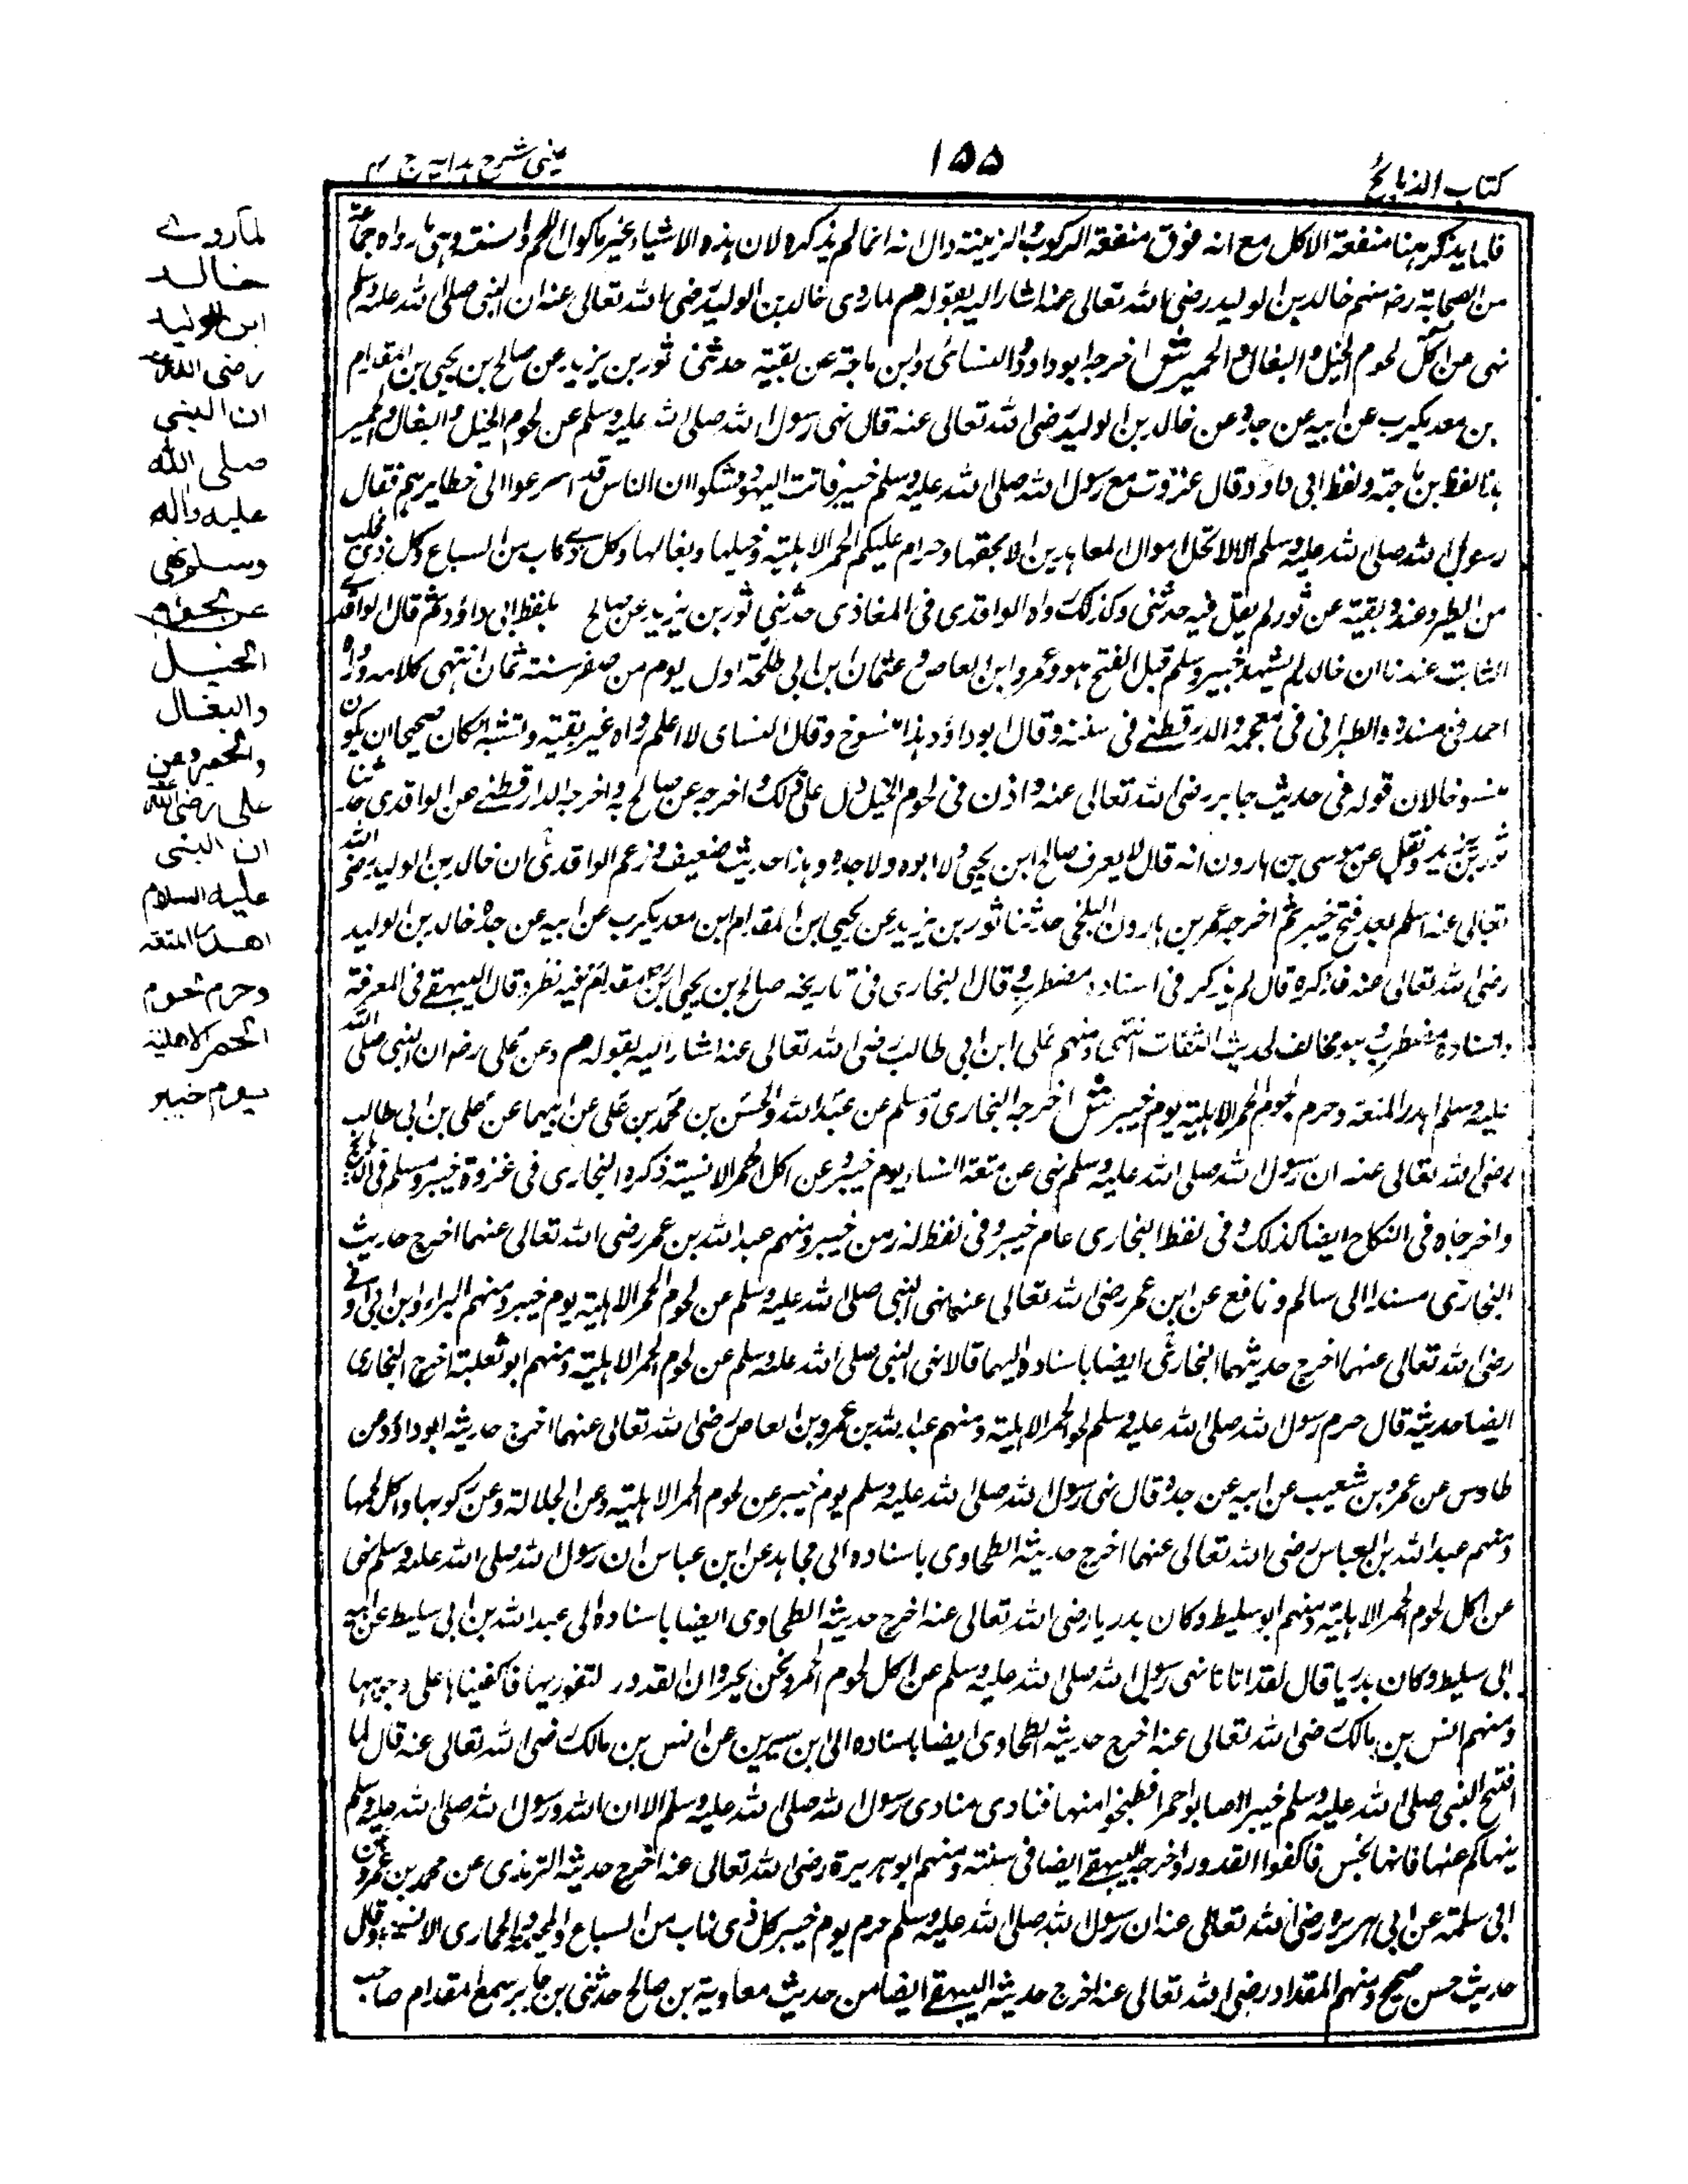 كتاب الذبائح
١٥٥
عيني شرح هدايه ج ٤
فلما يذكر ههنا منفعة الاكل مع انه فوق منفعة الركوب والزينة دال انه انما لم يذكره لان هذه الاشياء غير ماكول اللحم والسنة وهي ما رواه جماعة
من الصحابة رضہ منهم خالد بن الوليد رضى الله تعالى عنه اشار اليه بقوله م لما روى خالد بن الوليد رضى الله تعالى عنه ان النبى صلى الله عليه وسلم
نهى عن اكل لحوم الخيل والبغال والحمير ش اخرجه ابو داود والنسائى وابن ماجة عن بقية حدثنى ثور بن يزيد عن صالح بن يحيى بن المقدام
بن معديكرب عن ابيه عن جده عن خالد بن الوليد رضى الله تعالى عنه قال نهى رسول الله صلى الله عليه وسلم عن لحوم الخيل والبغال والحمير
هذا لفظ بن ماجة ولفظ ابى داود قال غزوت مع رسول الله صلى الله عليه وسلم خيبر فاتت اليهود فشكوا ان الناس قد اسرعوا الى حظايرهم فقال
رسول الله صلى الله عليه وسلم الا لا تحل اموال المعاهدين الا بحقها وحرام عليكم الحمر الاهلية وخيلها وبغالها وكل ذى ناب من السباع وكل ذى مخلب
من الطير وعنده بقية عن ثور لم يقل فيه حدثنى وكذلك رواه الواقدى فى المغازى حدثنى ثور بن يزيد عن صالح بلفظ ابى داؤد ثم قال الواقدے
الثابت عندنا ان خالدا لم يشهد خيبر وسلم قبل الفتح هو وعمرو ابن العاص وعثمان ابن ابى طلحة اول يوم من صفر سنة ثمان انتهى كلامه ورواه
احمد فى مسنده والطبرانى فى معجمه والدارقطنے فى سننه وقال ابو داؤد هذا منسوخ وقال النساى لا اعلم رواه غير بقية وتشبه انكان صحيحا ان يكون
منسوخا لان قوله فى حديث جابر رضى الله تعالى عنه واذن فى لحوم الخيل دل على ذلك واخرجه عن صالح به واخرجه الدارقطنے عن الواقدى حدثنا
ثور بن يزيد ونقل عن موسى بن هارون انه قال لا يعرف صالح ابن يحيى ولا ابوه ولا جده وهذا حديث ضعيف وزعم الواقدى ان خالد بن الوليد رضى الله
تعالى عنه اسلم بعد فتح خيبر ثم اخرجه عمر بن هارون البلخى حدثنا ثور بن يزيد عن يحيى ابن المقدام ابن معديكرب عن ابيه عن جده خالد بن الوليد
رضى الله تعالى عنه فذكره قال لم يذكر فى اسناده مضطرب وقال البخارى فى تاريخه صالح بن يحيى ابن مقدام فيه نظر وقال البيهقے فى المعرفة
واسناده مضطرب وهو مخالف لحديث الثقات انتهى ومنهم على ابن ابى طالب رضى الله تعالى عنه اشار اليه بقوله م وعن على رضہ ان النبى صلى الله
عليه وسلم اهدر المتعة وحرم لحوم الحمر الاهلية يوم خيبر ش اخرجه البخارى ومسلم عن عبد الله والحسن بن محمد بن على عن ابيهما عن على بن ابى طالب
رضى الله تعالى عنه ان رسول الله صلى الله عليه وسلم نهى عن متعة النساء يوم خيبر وعن اكل الحمر الانسية ذكره البخارى فى غزوة خيبر ومسلم فى الذبائح
واخرجاه فى النكاح ايضا كذلك وفى لفظ البخارى عام خيبر وفى لفظ له زمن خيبر ومنهم عبد الله بن عمر رضى الله تعالى عنهما اخرج حديث
البخارى مسندا الى سالم ونافع عن ابن عمر رضى الله تعالى عنهما نهى النبى صلى الله عليه وسلم عن لحوم الحمر الاهلية يوم خيبر ومنهم البراء وابن ابى اوفے
رضى الله تعالى عنهما اخرج حديثهما البخارى ايضا باسناده اليهما قالا نهى النبى صلى الله عليه وسلم عن لحوم الحمر الاهلية ومنهم ابو ثعلبة اخرج البخارى
ايضا حديثه قال حرم رسول الله صلى الله عليه وسلم لحوم الحمر الاهلية ومنهم عبد الله بن عمرو بن العاص رضى الله تعالى عنهما اخرج حديثه ابو داؤد من
طاوس عن عمرو بن شعيب عن ابيه عن جده قال نهى رسول الله صلى الله عليه وسلم يوم خيبر عن لحوم الحمر الاهلية وعن الجلالة وعن ركوبها واكل لحمها
ومنهم عبد الله بن العباس رضى الله تعالى عنهما اخرج حديثه الطحاوى باسناده الى مجاهد عن ابن عباس ان رسول الله صلى الله عليه وسلم نهى
عن اكل لحوم الحمر الاهلية ومنهم ابو سليط وكان بدريا رضى الله تعالى عنه اخرج حديثه الطحاوى ايضا باسناده الى عبد الله بن ابى سليط عن ابيه
ابى سليط وكان بدريا قال لقد اتانا نهى رسول الله صلى الله عليه وسلم عن اكل لحوم الحمر ونحن بخيبر وان القدور لتفور بها فاكفيناها على وجوهها
ومنهم انس بن مالك رضى الله تعالى عنه اخرج حديثه الطحاوى ايضا باسناده الى ابن سيرين عن انس بن مالك رضى الله تعالى عنه قال لما
افتتح النبى صلى الله عليه وسلم خيبر اصابوا حمرا فطبخوا منها فنادى منادى رسول الله صلى الله عليه وسلم الا ان الله ورسول الله صلى الله عليه وسلم
ينهاكم عنها فانها نجس فاكفوا القدور واخرجه البيهقے ايضا فى سننه ومنهم ابو هريرة رضى الله تعالى عنه اخرج حديثه الترمذى عن محمد بن عمرو عن
ابى سلمة عن ابى هريرة رضى الله تعالى عنه ان رسول الله صلى الله عليه وسلم حرم يوم خيبر كل ذى ناب من السباع والمجثمة والحمار الانسى وقال
حديث حسن صحيح ومنهم المقداد رضى الله تعالى عنه اخرج حديثه البيهقے ايضا من حديث معاوية بن صالح حدثنى بن جابر سمع المقدام صاحب
لما روے
خالد
ابن الوليد
رضى الله عنه
ان النبى
صلى الله
عليه واله
وسلم نهى
عن لحوم
الخيل
والبغال
والحمير وعن
على رضى الله عنه
ان النبى
عليه السلام
اهدر المتعة
وحرم لحوم
الحمر الاهلية
يوم خيبر